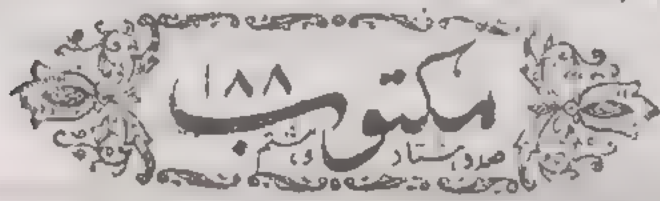 مکتوب ۱۸۸
صد و ہشتاد و ہشتم